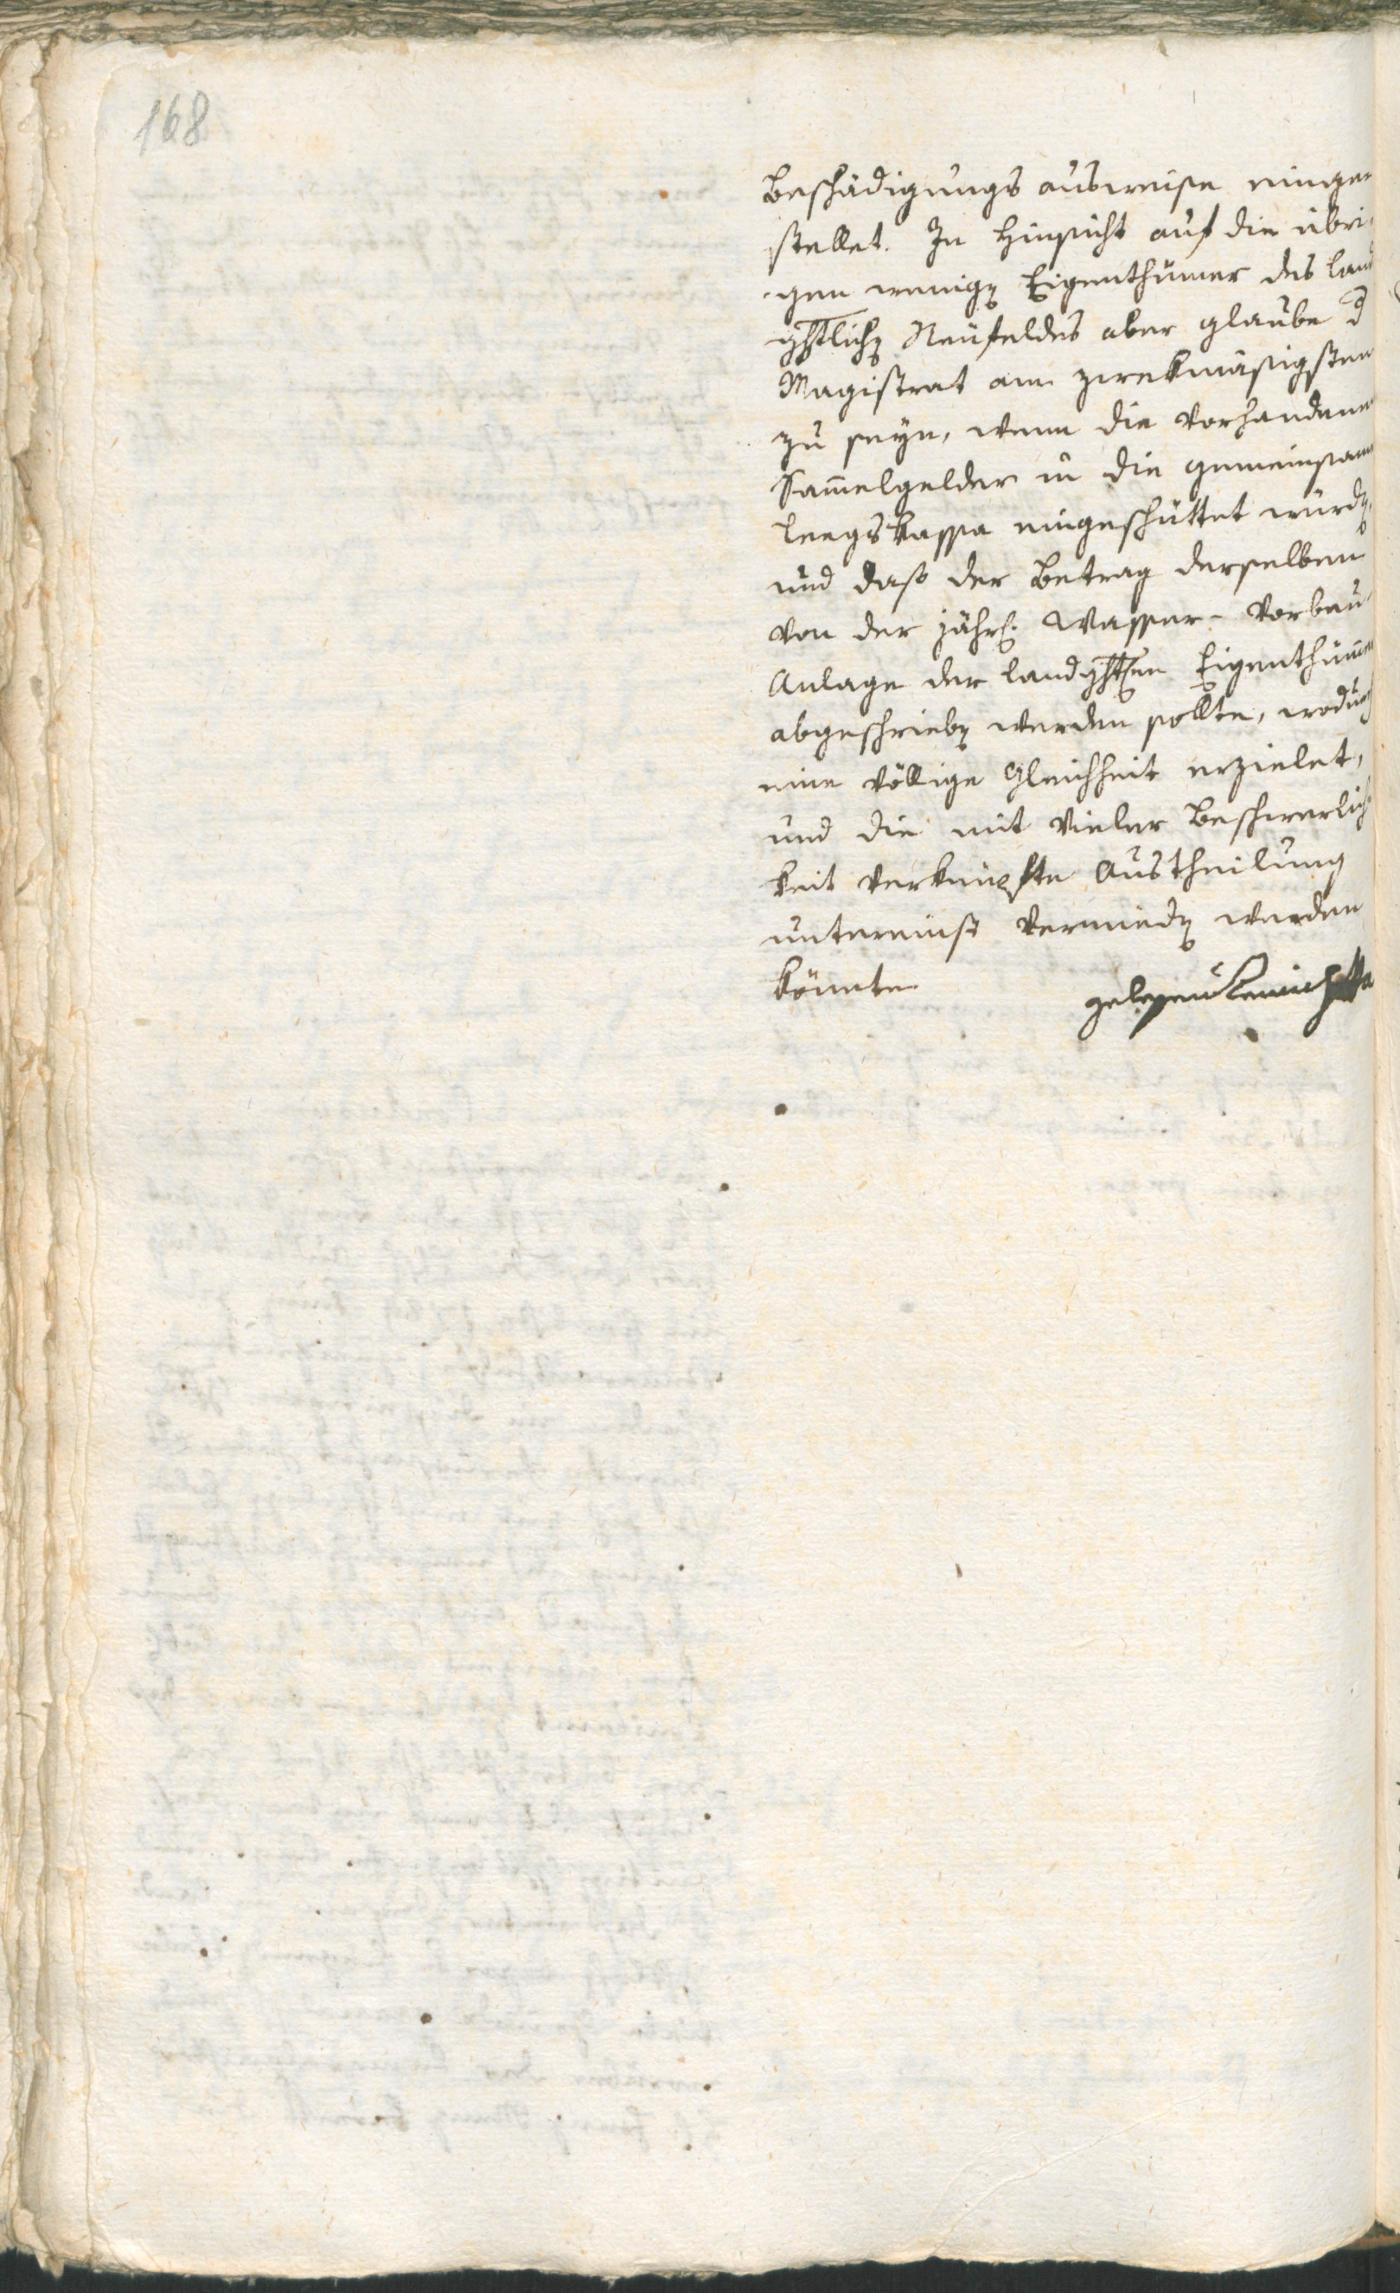 168
Beschädigungs ausweise einge-
stellet. In Hinsicht auf die übri-
gen wenigen Eigenthümer des land
ghtlichen Neufeldes aber glaube d
Magistrat am zwekmäsigsten
zu seyn, wenn die vorhandenen
Sam̄elgelder in die gemeinsame
kassa eingeschüttet würden,
und daß der Betrag derselben
von der jährl. Wasser-Vorbau-
Anlage der landghtlen Eigenthümer
abgeschrieben werden sollte, wodurch
eine völlige Gleichheit erzielet,
und die mit vieler Beschwerlich-
keit verknüpfte Austheilung
untereinst vermieden werden
könnte.
gelesen